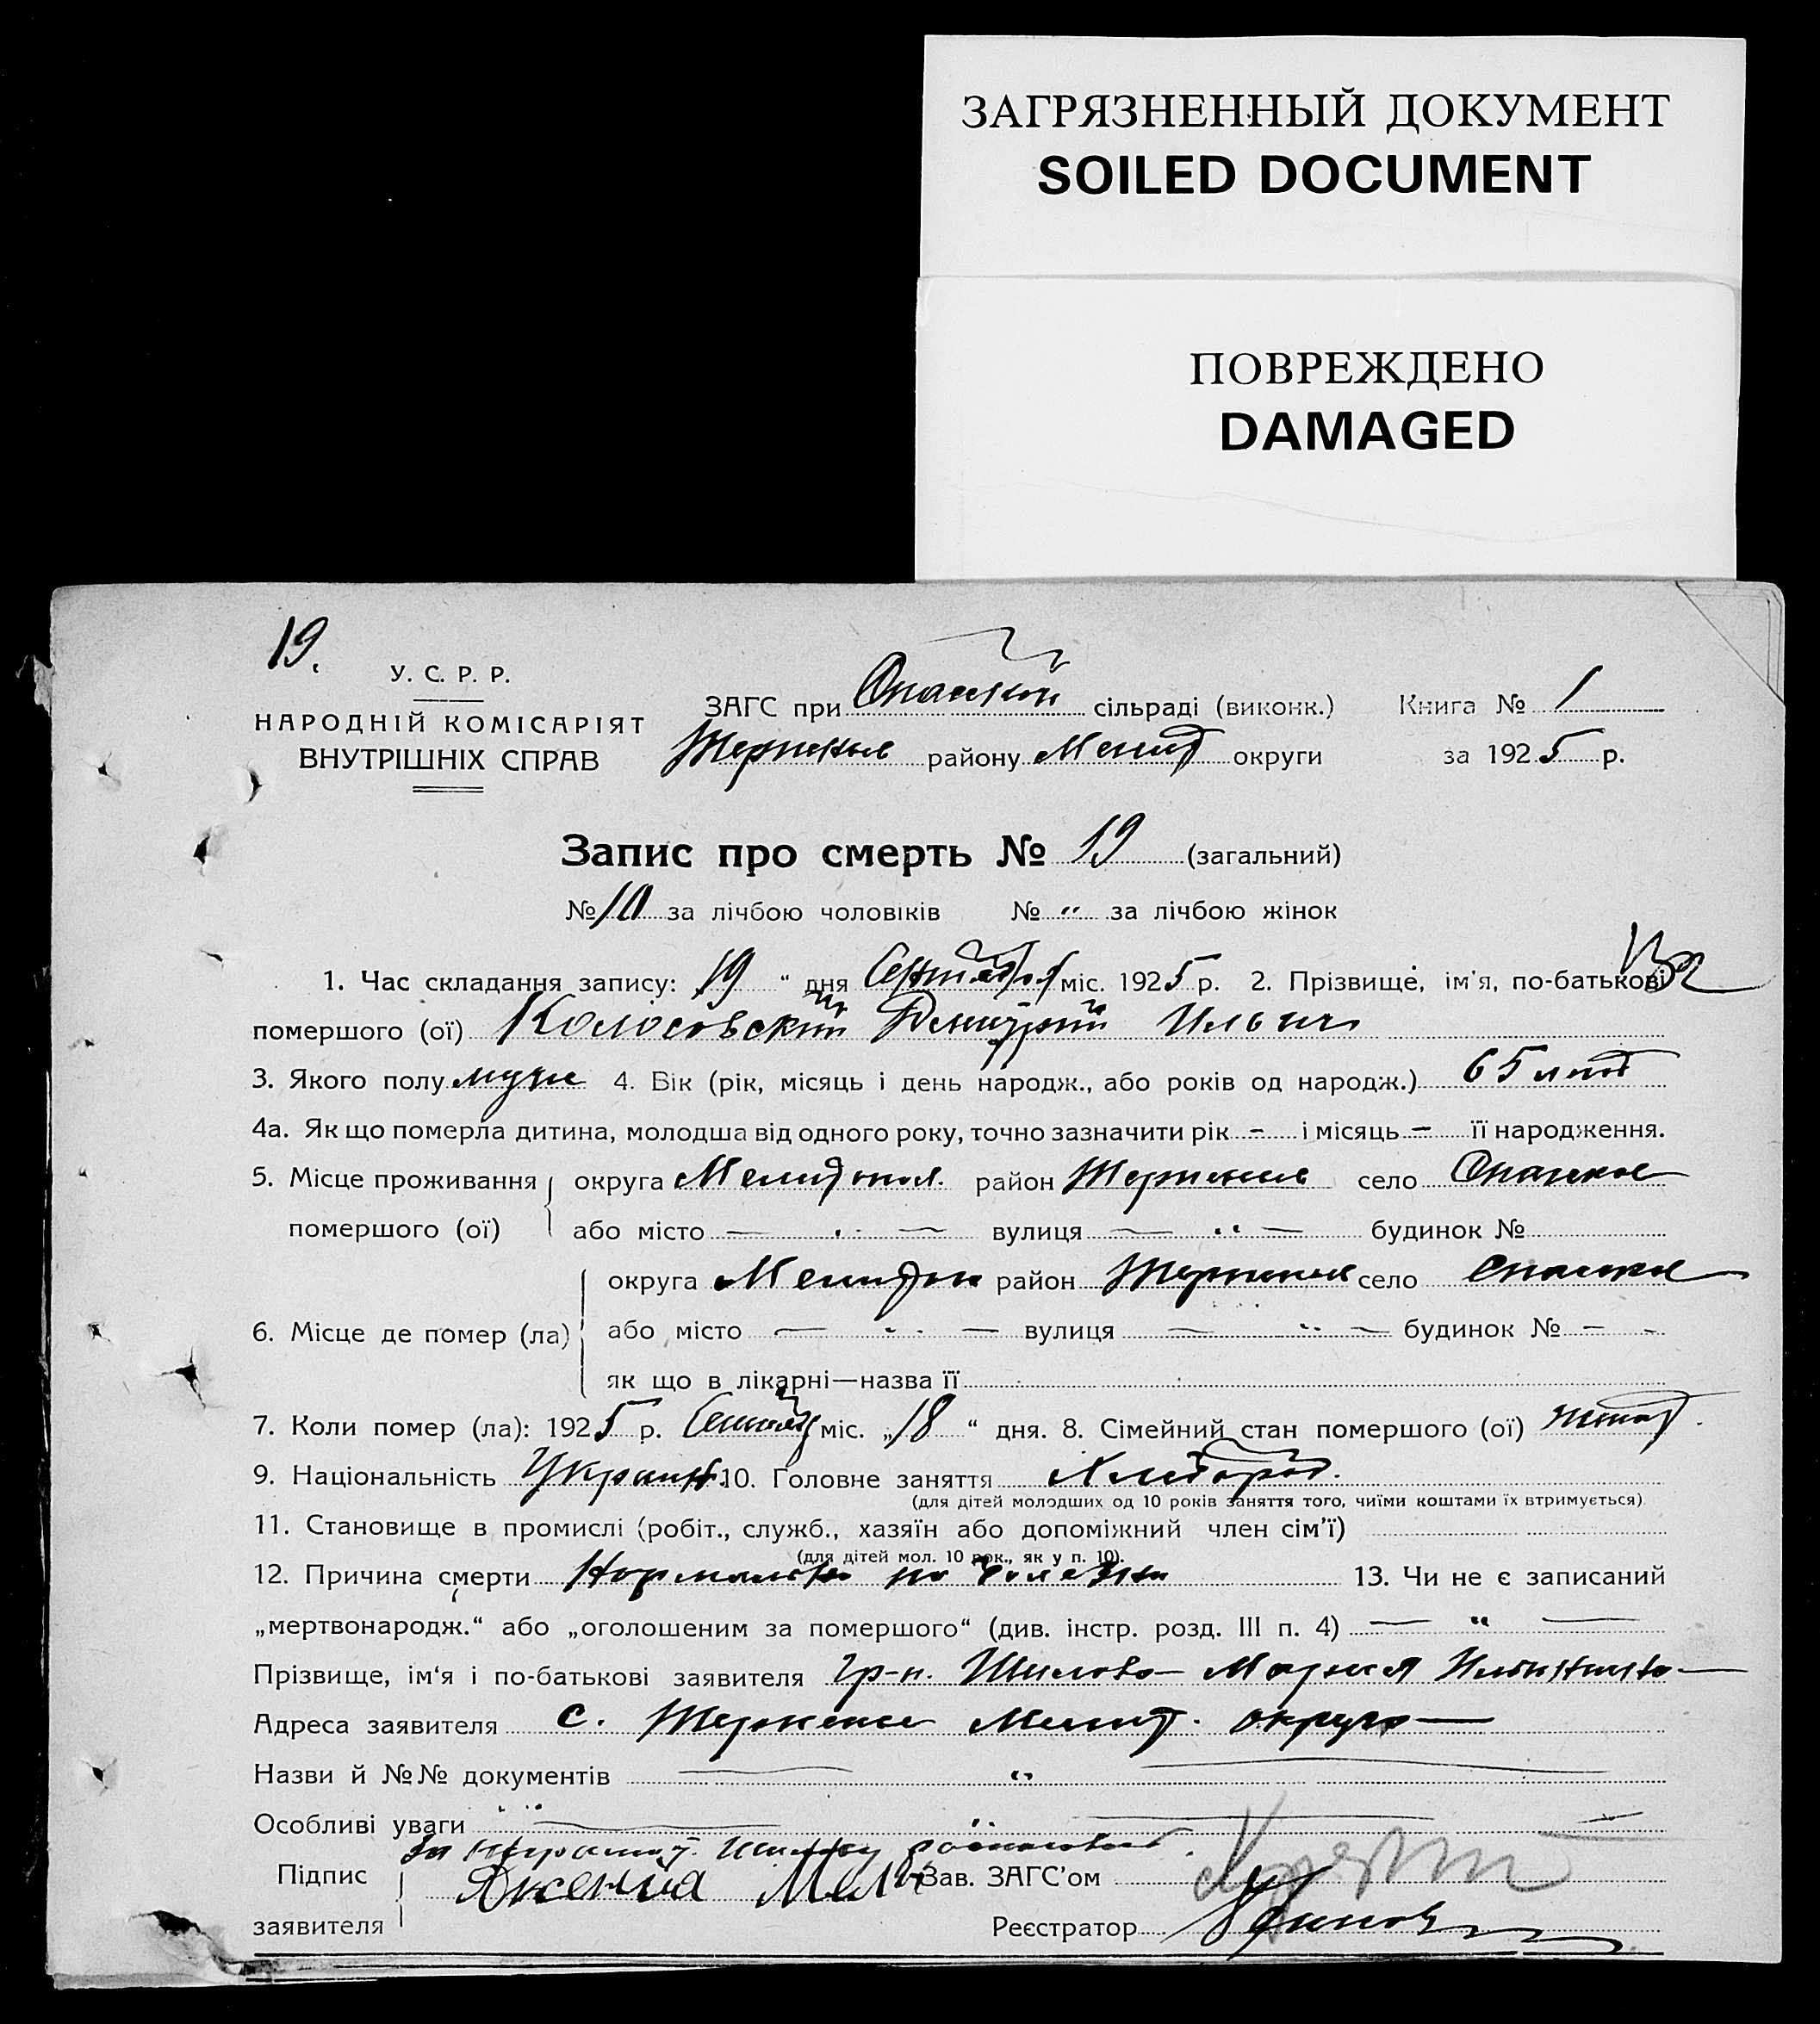 ЗАГРЯЗНЕННЫЙ ДОКУМЕНТ
SOILED DOCUMENT
ПОВРЕЖДЕНО
DAMAGED
19.
У. С. Р. Р.
НАРОДНІЙ КОМІСАРІЯТ
ВНУТРІШНІХ СПРАВ
ЗАГС при сільраді (виконк.) Книга № 1
району Мелит округи за 1925 р.
Запис про смерть № 19 (загальний)
№ 10 за лічбою чоловіків № " за лічбою жінок
1. Час складання запису: 19 " дня Сентября міс. 1925 р. 2. Прізвище, ім'я, по-батькові
помершого (ої) Колосовский Дмитрий Ильич
3. Якого полу муж 4. Вік (рік, місяць і день народж., або років од народж.) 65 лет
4а. Як що померла дитина, молодша від одного року, точно зазначити рік - і місяць - її народження.
5. Місце проживання округа Мелитопол. район село Спаское
помершого (ої) або місто — " — вулиця — " — будинок №
округа Мелитоп район село Спаское
6. Місце де помер (ла) або місто — " — вулиця — " — будинок № - -
як що в лікарні—назва її
7. Коли помер (ла): 1925 р. Сентяб міс. „18 " дня. 8. Сімейний стан помершого (ої) женат.
9. Національність Украин. 10. Головне заняття Хлебороб.
(для дітей молодших од 10 років заняття того, чиїми коштами їх втримується)
11. Становище в промислі (робіт., служб., хазяїн або допоміжний член сім'ї)
(для дітей мол. 10 рок., як у п. 10).
12. Причина смерти по болезни 13. Чи не є записаний
„мертвонародж." або „оголошеним за помершого" (див. інстр. розд. III п. 4) — " —
Прізвище, ім'я і по-батькові заявителя гр-н. Шилова Мария Ильинична
Адреса заявителя с. Мелит. округа
Назви й №№ документів — " —
Особливі уваги
За неграмот.
Підпис Зав. ЗАГС'ом
заявителя Реєстратор